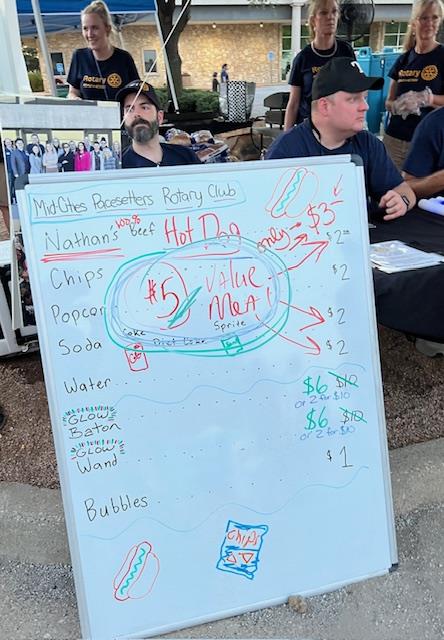 Rotary
Rotary
Rotary
T
Mid-Cities Pacesetters Rotary Club
Nathan's 100% Beef Hot Dog only $3
Chips $2.00
Popcorn $2
#5 Value Meal
Soda Coke Diet Coke Sprite $2
Water $2
Glow Baton $6 $10
or 2 for $10
Glow Wand $6 $10
or 2 for $10
Bubbles $1
Chips